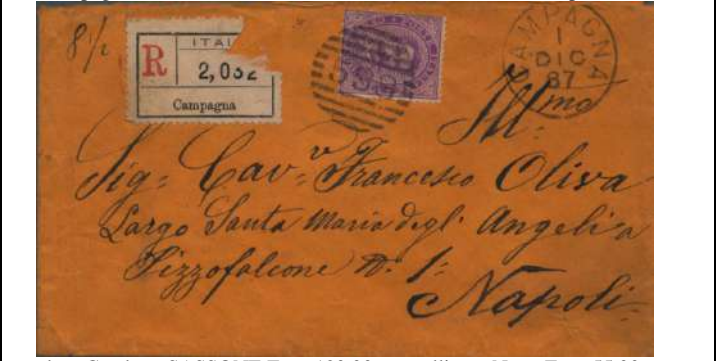 8 1/2
R
ITAL
2,032
Campagna
CAMPAGNA
1
DIC
87
Ill:mo
Sig: Cav:r Francesco Oliva
Largo Santa Maria degl' Angeli a
Pizzofalcone N: 1:
Napoli